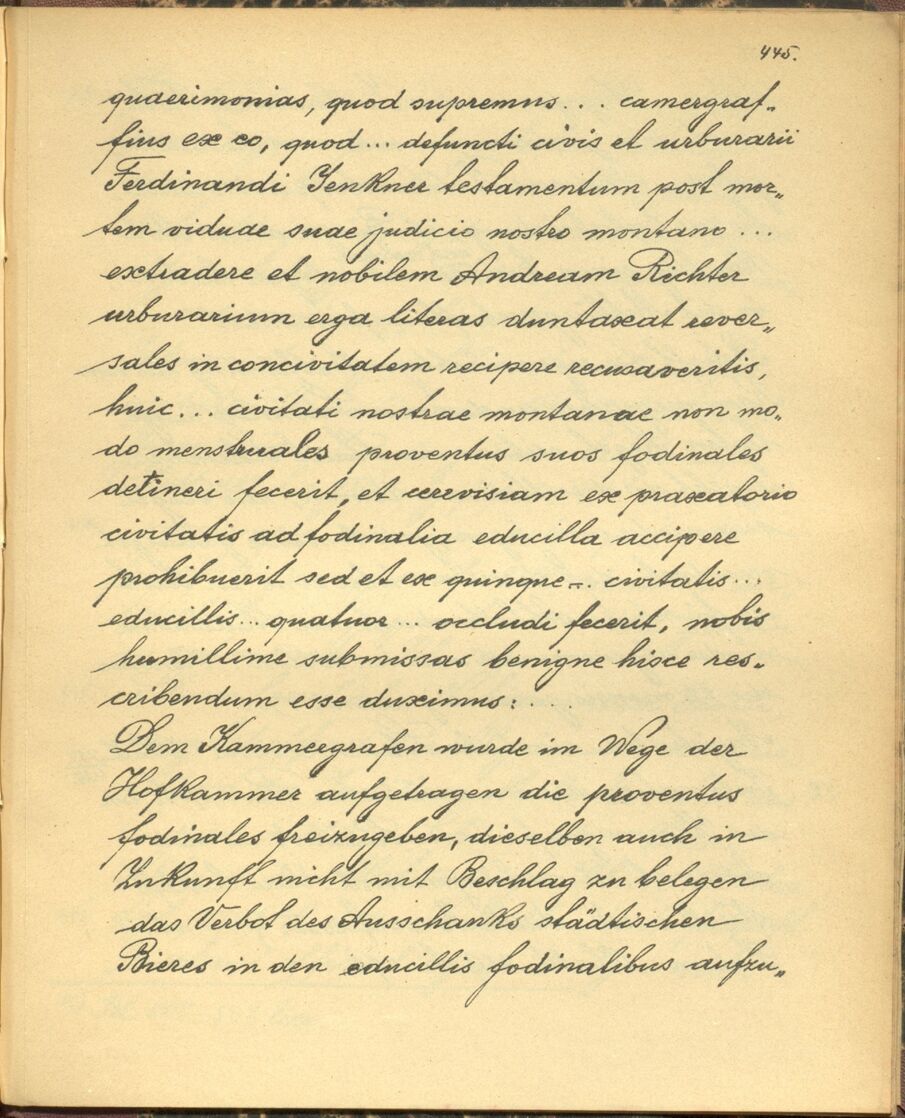 445.
quaerimonias, quod supremus... camergraf„
fius ex eo, quod... defuncti civis et urburarii
Ferdinandi Jenkner testamentum post mor„
tem viduae suae judicio nostro montano ...
extradere et nobilem Andream Richter
urburarium erga literas duntaxat rever„
sales in concivitatem recipere recusaveritis,
huic... civitati nostrae montanae non mo„
do menstruales proventus suos fodinales
detineri fecerit, et cerevisiam ex praxatorio
civitatis ad fodinalia educilla accipere
prohibuerit sed et ex quinque... civitatis...
educillis... quatuor... occludi fecerit, nobis
humillime submissas benigne hisce res„
cribendum esse duximus:....
Dem Kammergrafen wurde im Wege der
Hofkammer aufgetragen die proventus
fodinales freizugeben, dieselben auch in
Zukunft nicht mit Beschlag zu belegen
das Verbot des Ausschanks städtischen
Bieres in den educillis fodinalibus aufzu„